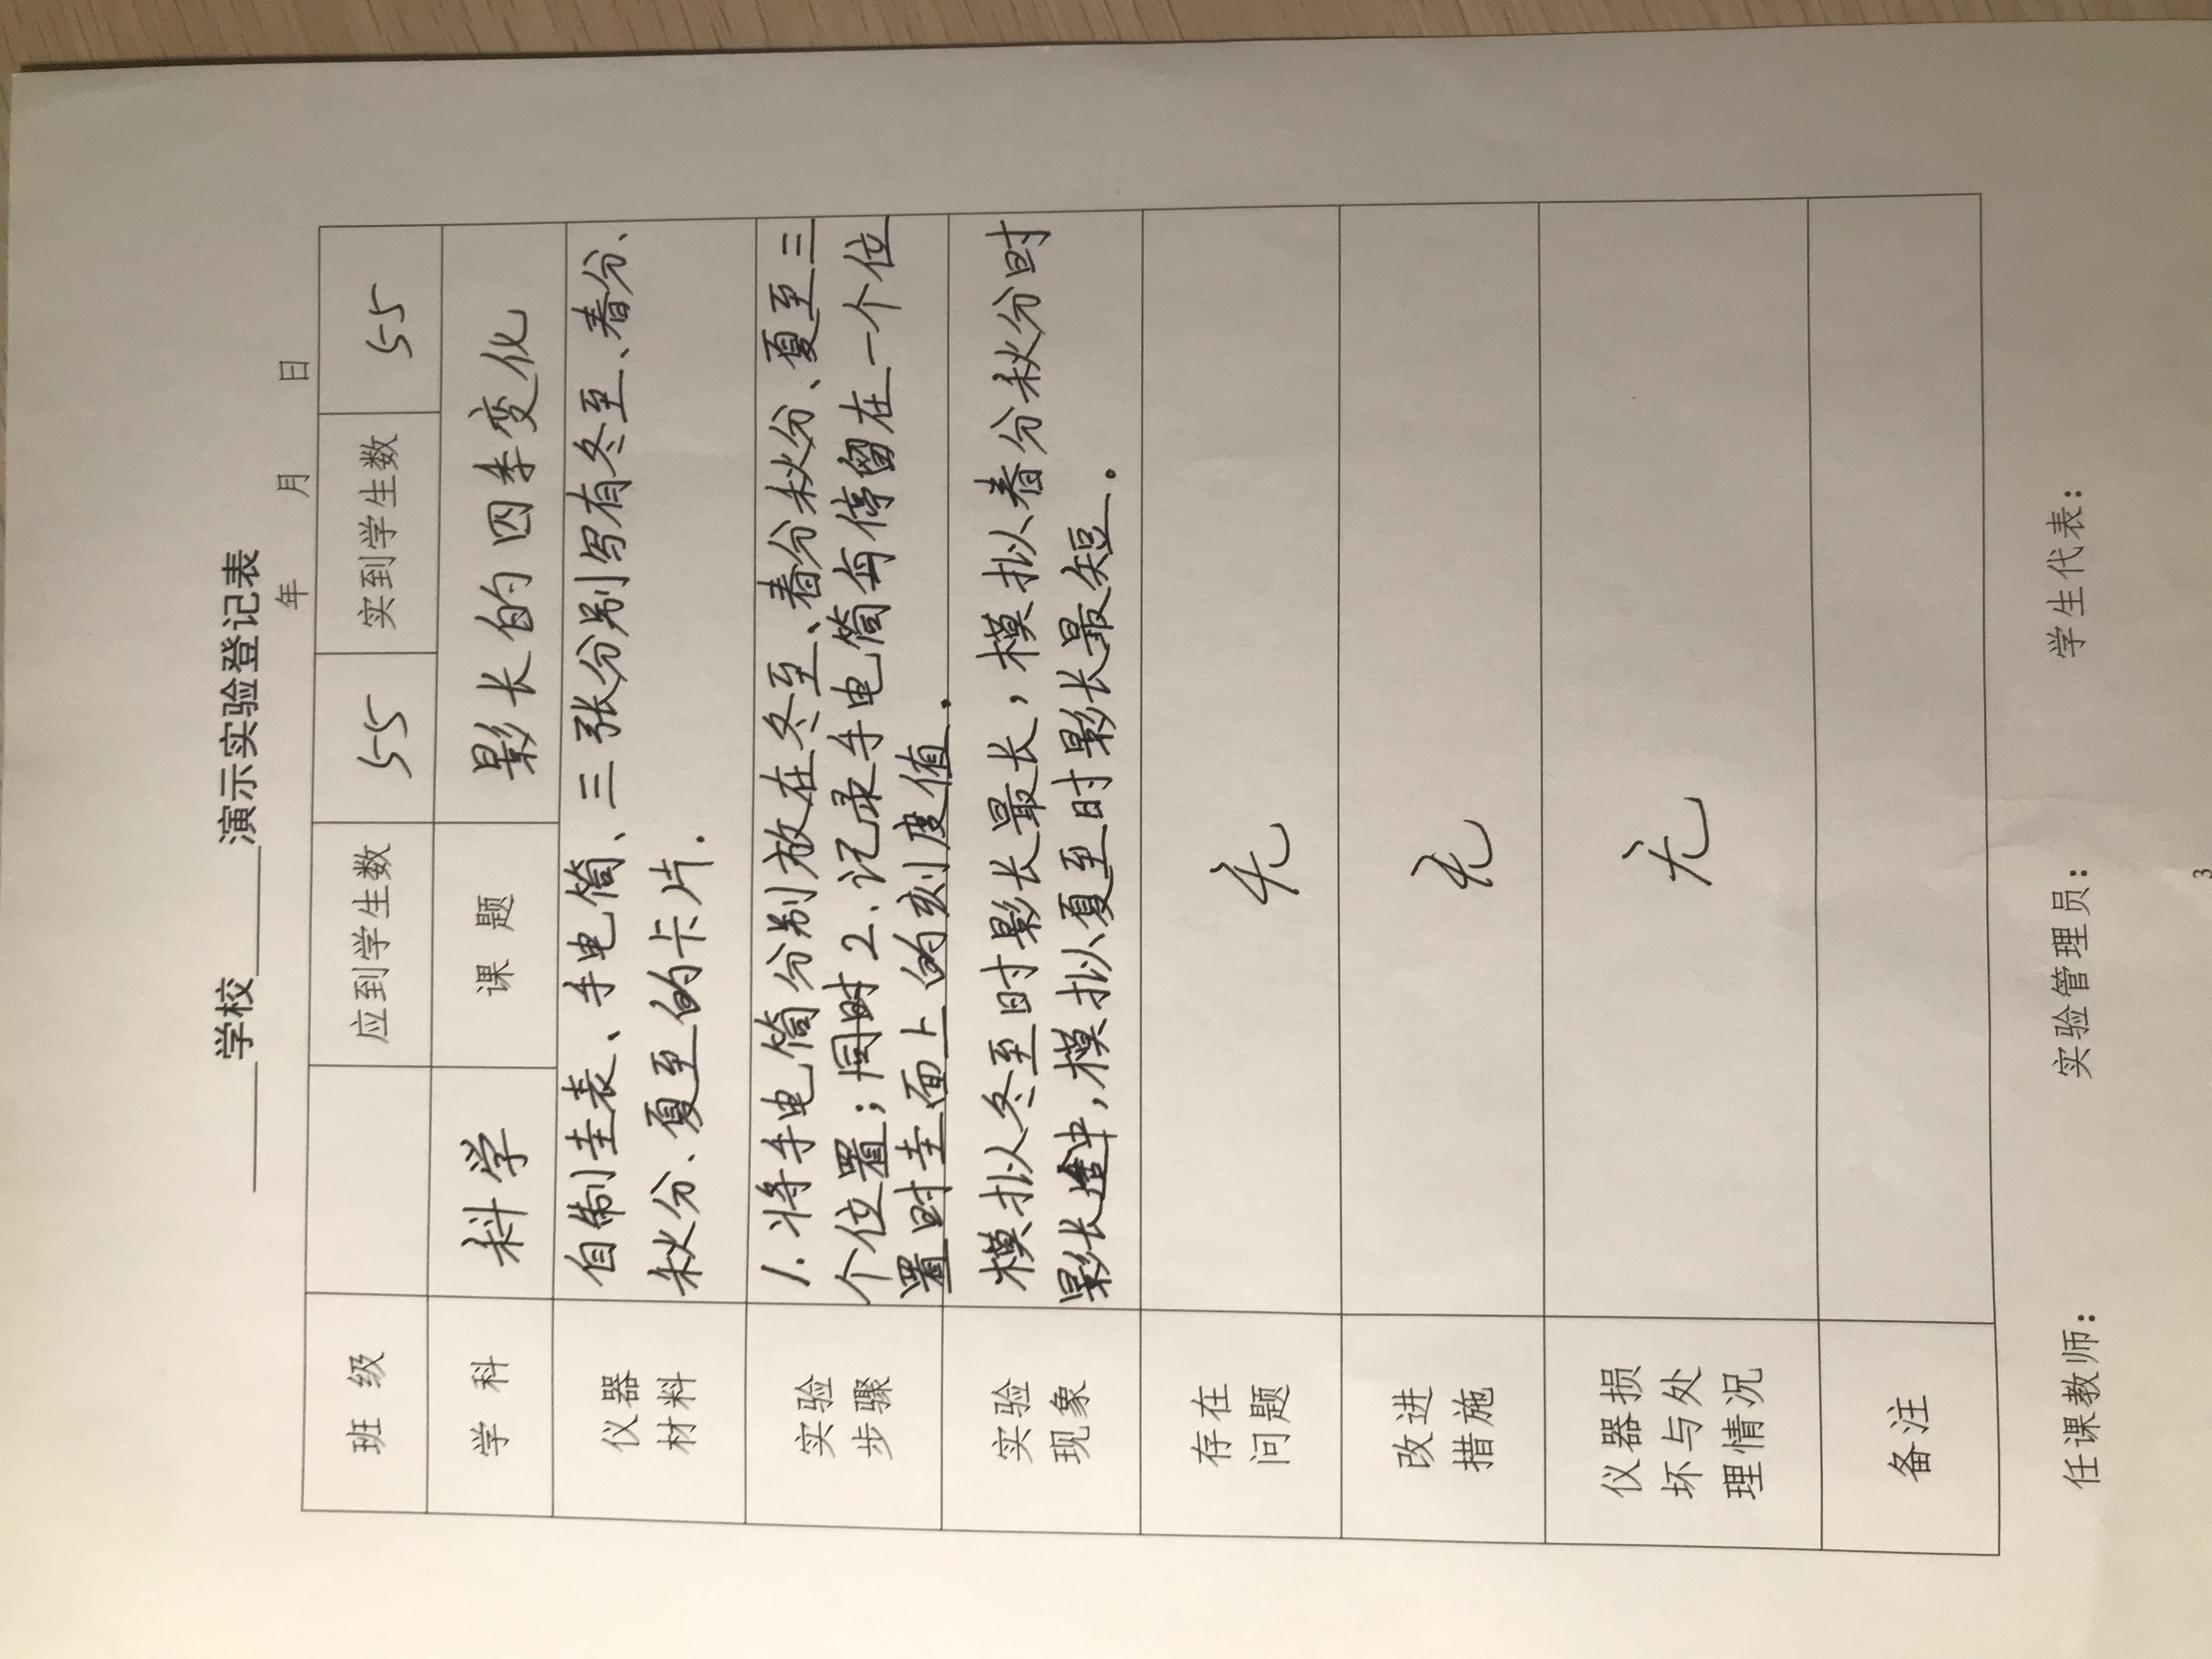 学校 演示实验登记表
年 月 日
班 级 应到学生数 55 实到学生数 55
学 科 科学 课 题 影长的四季变化
仪器
材料
自制圭表、手电筒、三张分别写有冬至、春分、
秋分、夏至的卡片.
实验
步骤
1.将手电筒分别放在冬至、春分秋分、夏至三
个位置;同时2.记录手电筒每停留在一个位
置时圭面上的刻度值.
实验
现象
模拟冬至时影长最长,模拟春分秋分时
影长适中,模拟夏至时影长最短.
存在
问题
无
改进
措施
无
仪器损
坏与处
理情况
无
备注
任课教师: 实验管理员: 学生代表:
3